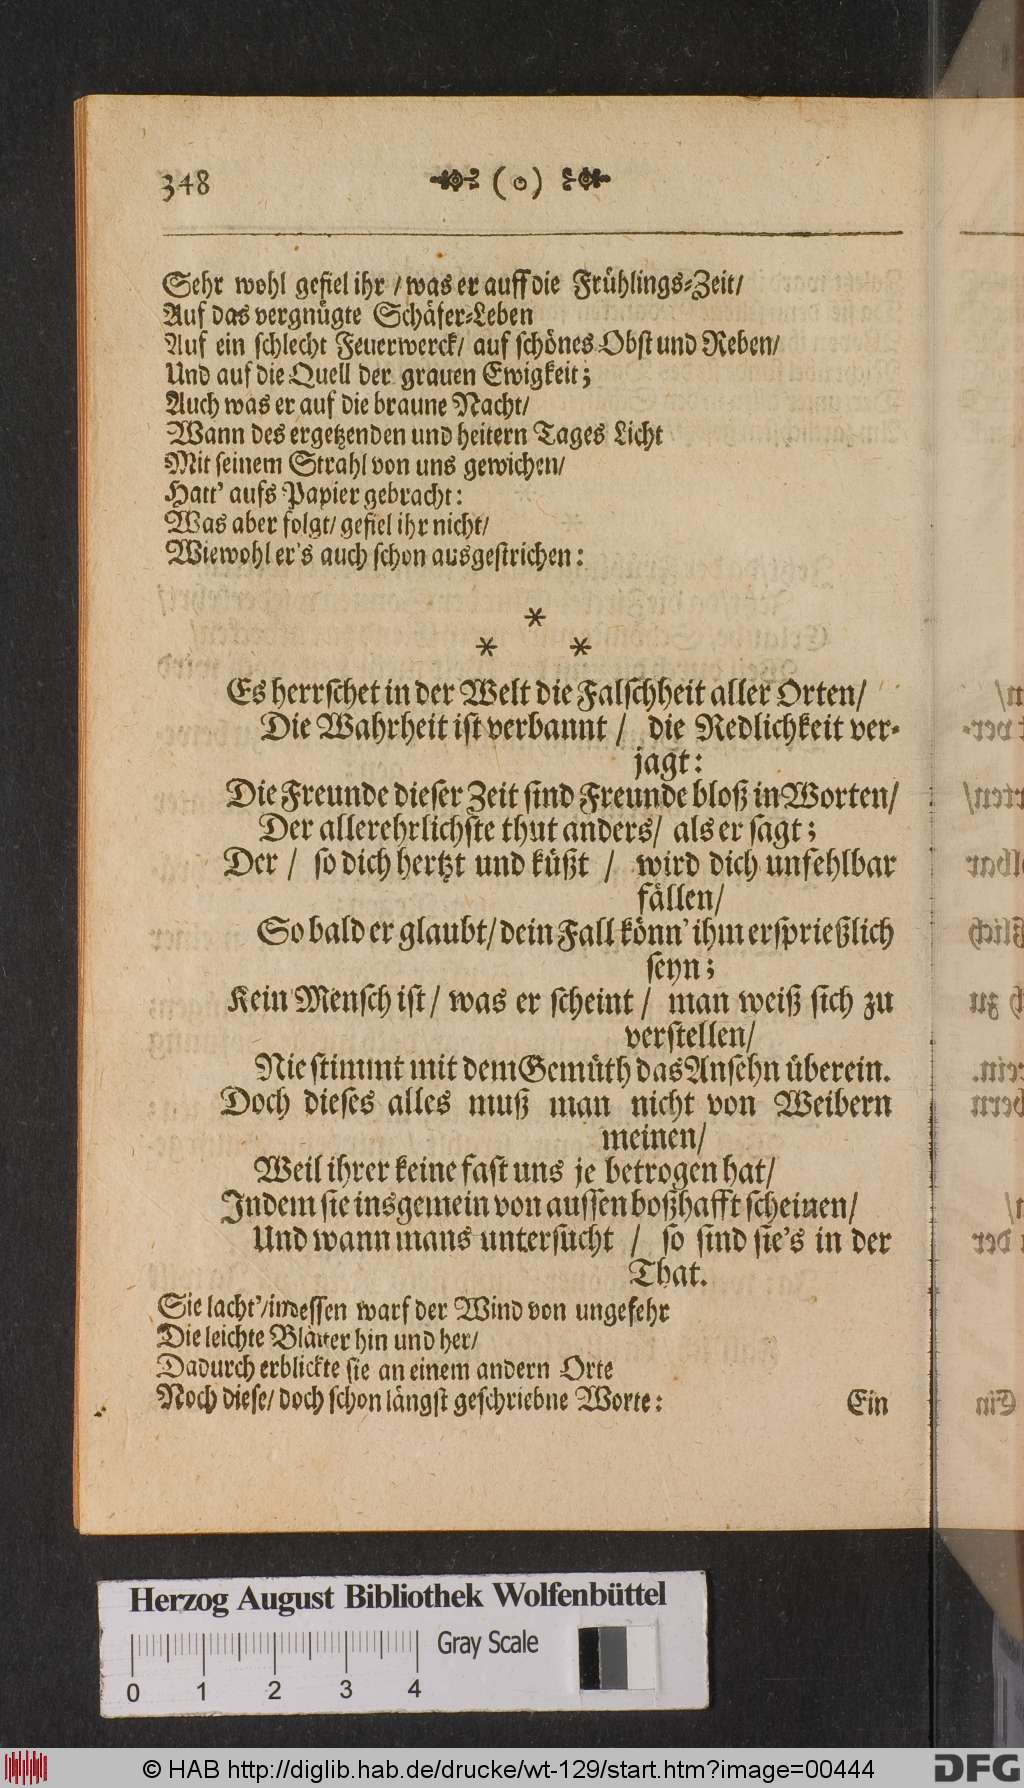 348 (o)
Sehr wohl gefiel ihr / was er auff die Frühlings-Zeit/
Auf das vergnügte Schäfer-Leben
Auf ein schlecht Feuerwerck/ auf schönes Obst und Reben/
Und auf die Quell der grauen Ewigkeit;
Auch was er auf die braune Nacht/
Wann des ergetzenden und heitern Tages Licht
Mit seinem Strahl von uns gewichen/
Hatt' aufs Papier gebracht:
Was aber folgt/ gefiel ihr nicht/
Wiewohl er's auch schon ausgestrichen:
*
* *
Es herrschet in der Welt die Falschheit aller Orten/
Die Wahrheit ist verbannt / die Redlichkeit ver-
jagt:
Die Freunde dieser Zeit sind Freunde bloß in Worten/
Der allerehrlichste thut anders/ als er sagt;
Der / so dich hertzt und küßt / wird dich unfehlbar
fällen/
So bald er glaubt/ dein Fall könn' ihm ersprießlich
seyn;
Kein Mensch ist / was er scheint / man weiß sich zu
verstellen/
Nie stimmt mit dem Gemüth das Ansehn überein.
Doch dieses alles muß man nicht von Weibern
meinen/
Weil ihrer keine fast uns je betrogen hat/
Indem sie insgemein von aussen boßhafft scheinen/
Und wann mans untersucht / so sind sie's in der
That.
Sie lacht'/ indessen warf der Wind von ungefehr
Die leichte Blätter hin und her/
Dadurch erblickte sie an einem andern Orte
Noch diese/ doch schon längst geschriebne Worte:
Ein
Herzog August Bibliothek Wolfenbüttel
Gray Scale
0 1 2 3 4
© HAB http://diglib.hab.de/drucke/wt-129/start.htm?image=00444
DFG